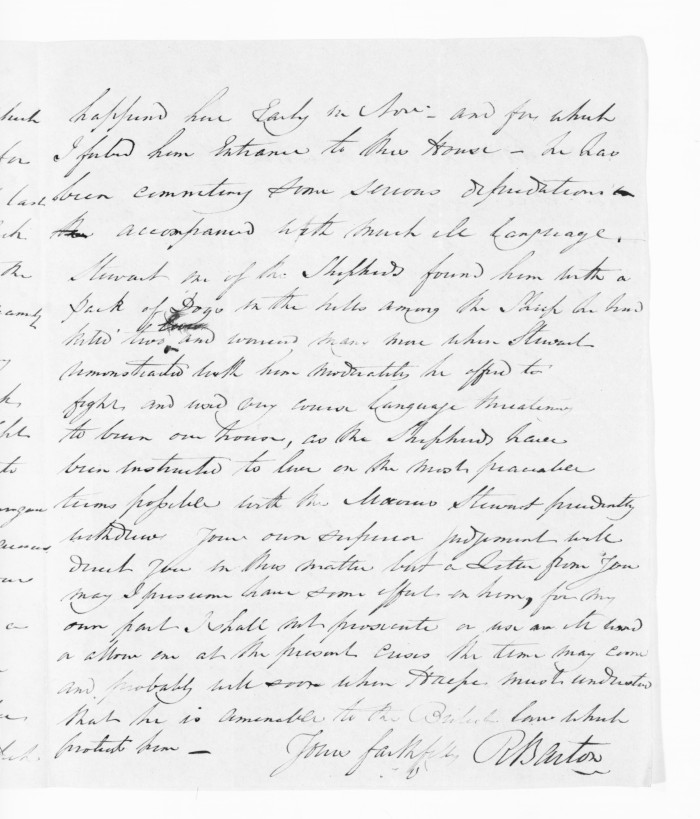 happened here Early in Novr - and for which
I forbid him Entrance to this House - he has
been commiting some serious depredations
accompanied with much ill Language.
Stewart one of the Shepherds found him with a
pack of Dogs in the hills among the Sheep he had
killed two and worried many more when Stewart
remonstrated with him moderately he offerd to
fight and used very course Language threatening
to burn our house, as the Shepherds have
been instructed to live on the most peaceable
terms possible with the Maories Stewart prudently
withdrew Your own superior judgement will
direct you in this matter but a Letter from You
may I presume have some effect on him, for my
own part I shall not prosecute or use an ill word
or allow one at the present crisis the time may come
and probably will soon when must understand
that he is amenable to the British law which
protects him -
Yours faithfully RBarton
hich
for
last
the